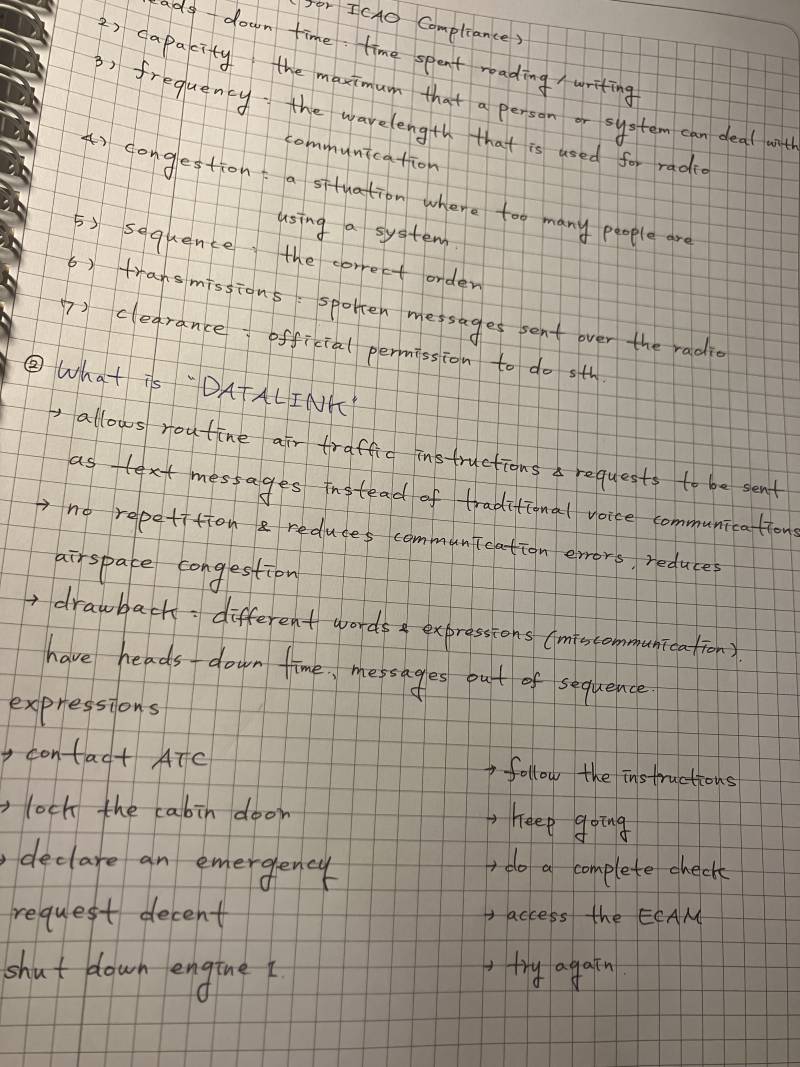 for ICAO Compliance)
eads-down time : time spent reading/writing
2) capacity : the maximum that a person or system can deal with
3) frequency : the wavelength that is used for radio
communication
4) congestion : a situation where too many people are
using a system.
5) sequence : the correct order
6) transmissions : spoken messages sent over the radio
7) clearance : official permission to do sth.
② What is "DATALINK"
→ allows routine air traffic instructions & requests to be sent
as text messages instead of traditional voice communications
→ no repetition & reduces communication errors, reduces
airspace congestion
→ drawback : different words & expressions (miscommunication).
have heads-down time, messages out of sequence.
expressions
→ contact ATC
→ lock the cabin door
→ declare an emergency
request decent
shut down engine 1.
→ follow the instructions
→ keep going
→ do a complete check
→ access the ECAM
→ try again.